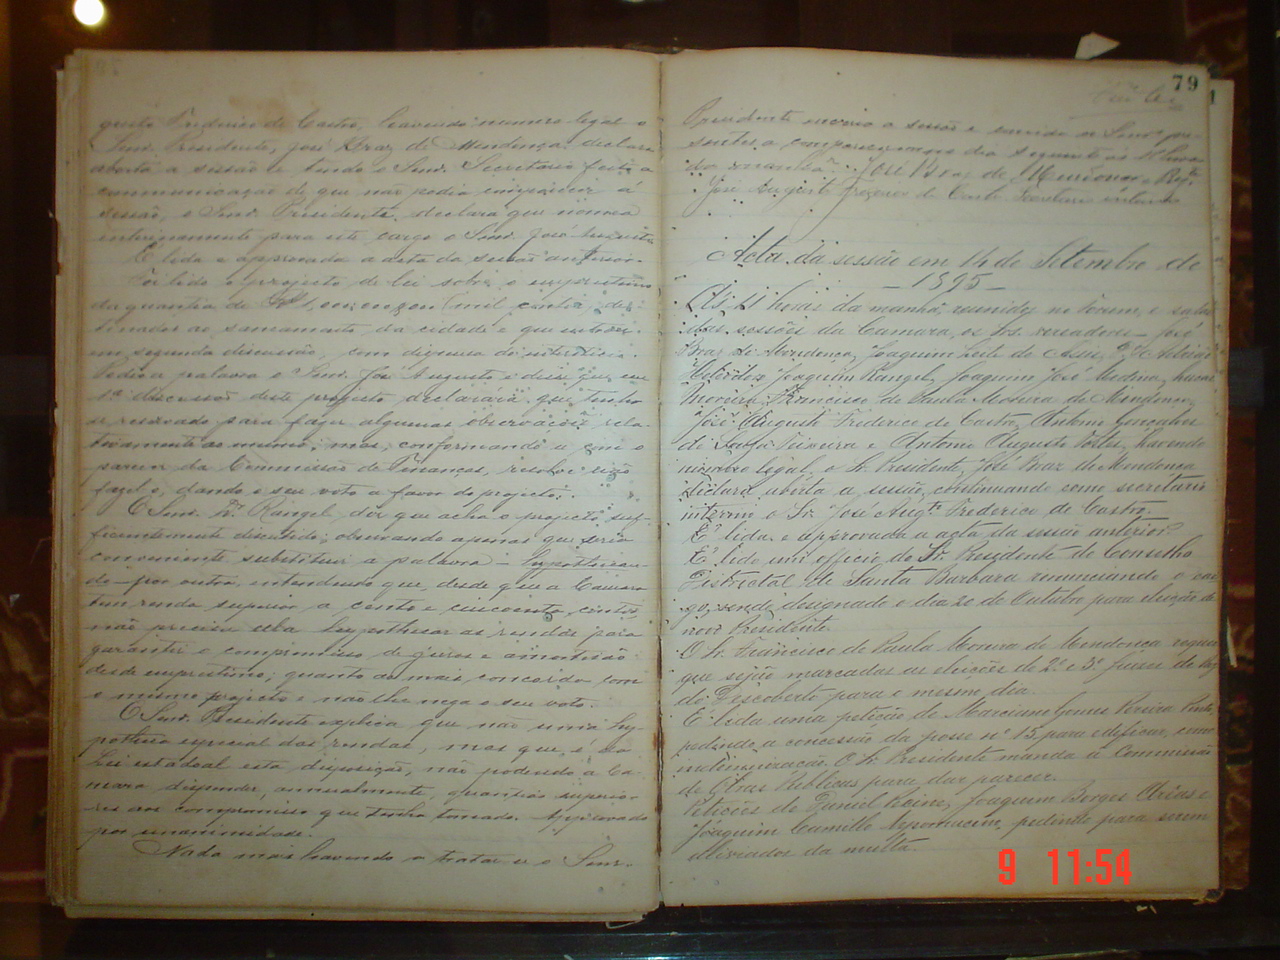 gusto Frederico de Castro, havendo numero legal o
Senr. Presidente, José Braz de Mendonça, declara
aberta a sessão e tendo o Senr. Secretario feito a
communicação de que não podia comparecer á
sessão, o Senr. Presidente declara que nomea
interinamente para este cargo o Senr. José Augusto
É lida e approvada a acta da sessão anterior.
Foi lido o projecto de lei sobre o emprestimo
da quantia de mil contos des-
tinados ao saneamento da cidade e que entrou
em segunda discussão, com dispensa de intersticio.
Pedio a palavra o Senr. José Augusto e disse que em
1ª discussão deste projecto declarara que tinha
se reservado para fazer algumas observações rela-
tivamente ao mesmo; mas, conformando-se com o
parecer da Commissão de Finanças, resolve não
fazel-o, dando o seu voto a favor do projecto.
O Senr. Rangel diz que acha o projecto suf-
ficientemente discutido; observando apenas que seria
conveniente substituir a palavra - hypothecan-
do - por outra, entendendo que, desde que a Camara
tem renda superior a cento e cincoenta contos
não precisa ella hypothecar as rendas para
garantir o compromisso de juros e amortisação
desde emprestimo; quanto ao mais concorda com
o mesmo projecto e não lhe nega o seu voto.
O Senr. Presidente explica que não é uma hy-
potheca especial das rendas, mas que, é da
Lei estadoal esta disposição, não podendo a Ca-
mara dispender, annualmente, quantias superio-
res aos compromisso que tenha tomado. Approvado
por unanimidade.
Nada mais havendo a tratar-se o Senr.
79
Presidente encerra a sessão e convida os Senrs. pre-
sentes a comparecerem no dia seguinte ás 11 horas
da manhã. José Braz de Mendonça
José Augusto Frederico de Castro Secretario interino
Acta da sessão em 14 de Setembro de
- 1895 -
Ás 11 horas da manhã, reunidos no Forum, e sala
das sessões da Camara, os Srs. vereadores - José
Braz de Mendonça, Joaquim Leite de Assis,
Joaquim Rangel, Joaquim José
Moreira, Francisco de Paula Moreira de Mendonça,
José Augusto Frederico de Castro, Antonio Gonçalves
de Souza Teixeira e Antonio Augusto, havendo
numero legal, o Sr. Presidente, José Braz de Mendonça
declara aberta a sessão, continuando como secretario
interino o Sr. José Augto. Frederico de Castro.
É lida e approvada a acta da sessão anterior.
É lido um officio do Sr. Presidente do Conselho
Districtal de Santa Barbara renunciando o car-
go, sendo designado o dia 20 de Outubro para eleição de
novo Presidente.
O Sr. Francisco de Paula Moreira de Mendonça requer
que sejão marcadas as eleições de 2º e 3º juizes de paz
do Descoberto para o mesmo dia.
É lida uma petição de Marciano Gomes Pereira Pinto,
pedindo a concessão da posse nº 15 para edificar, como
indemnização. O Sr. Presidente manda á Commissão
de Obras Publicas para dar parecer.
Petições de Daniel, Joaquim Borges Arêas e
Joaquim Camillo Nepomuceno, pedindo para serem
alliviados da multa.
9 11:54